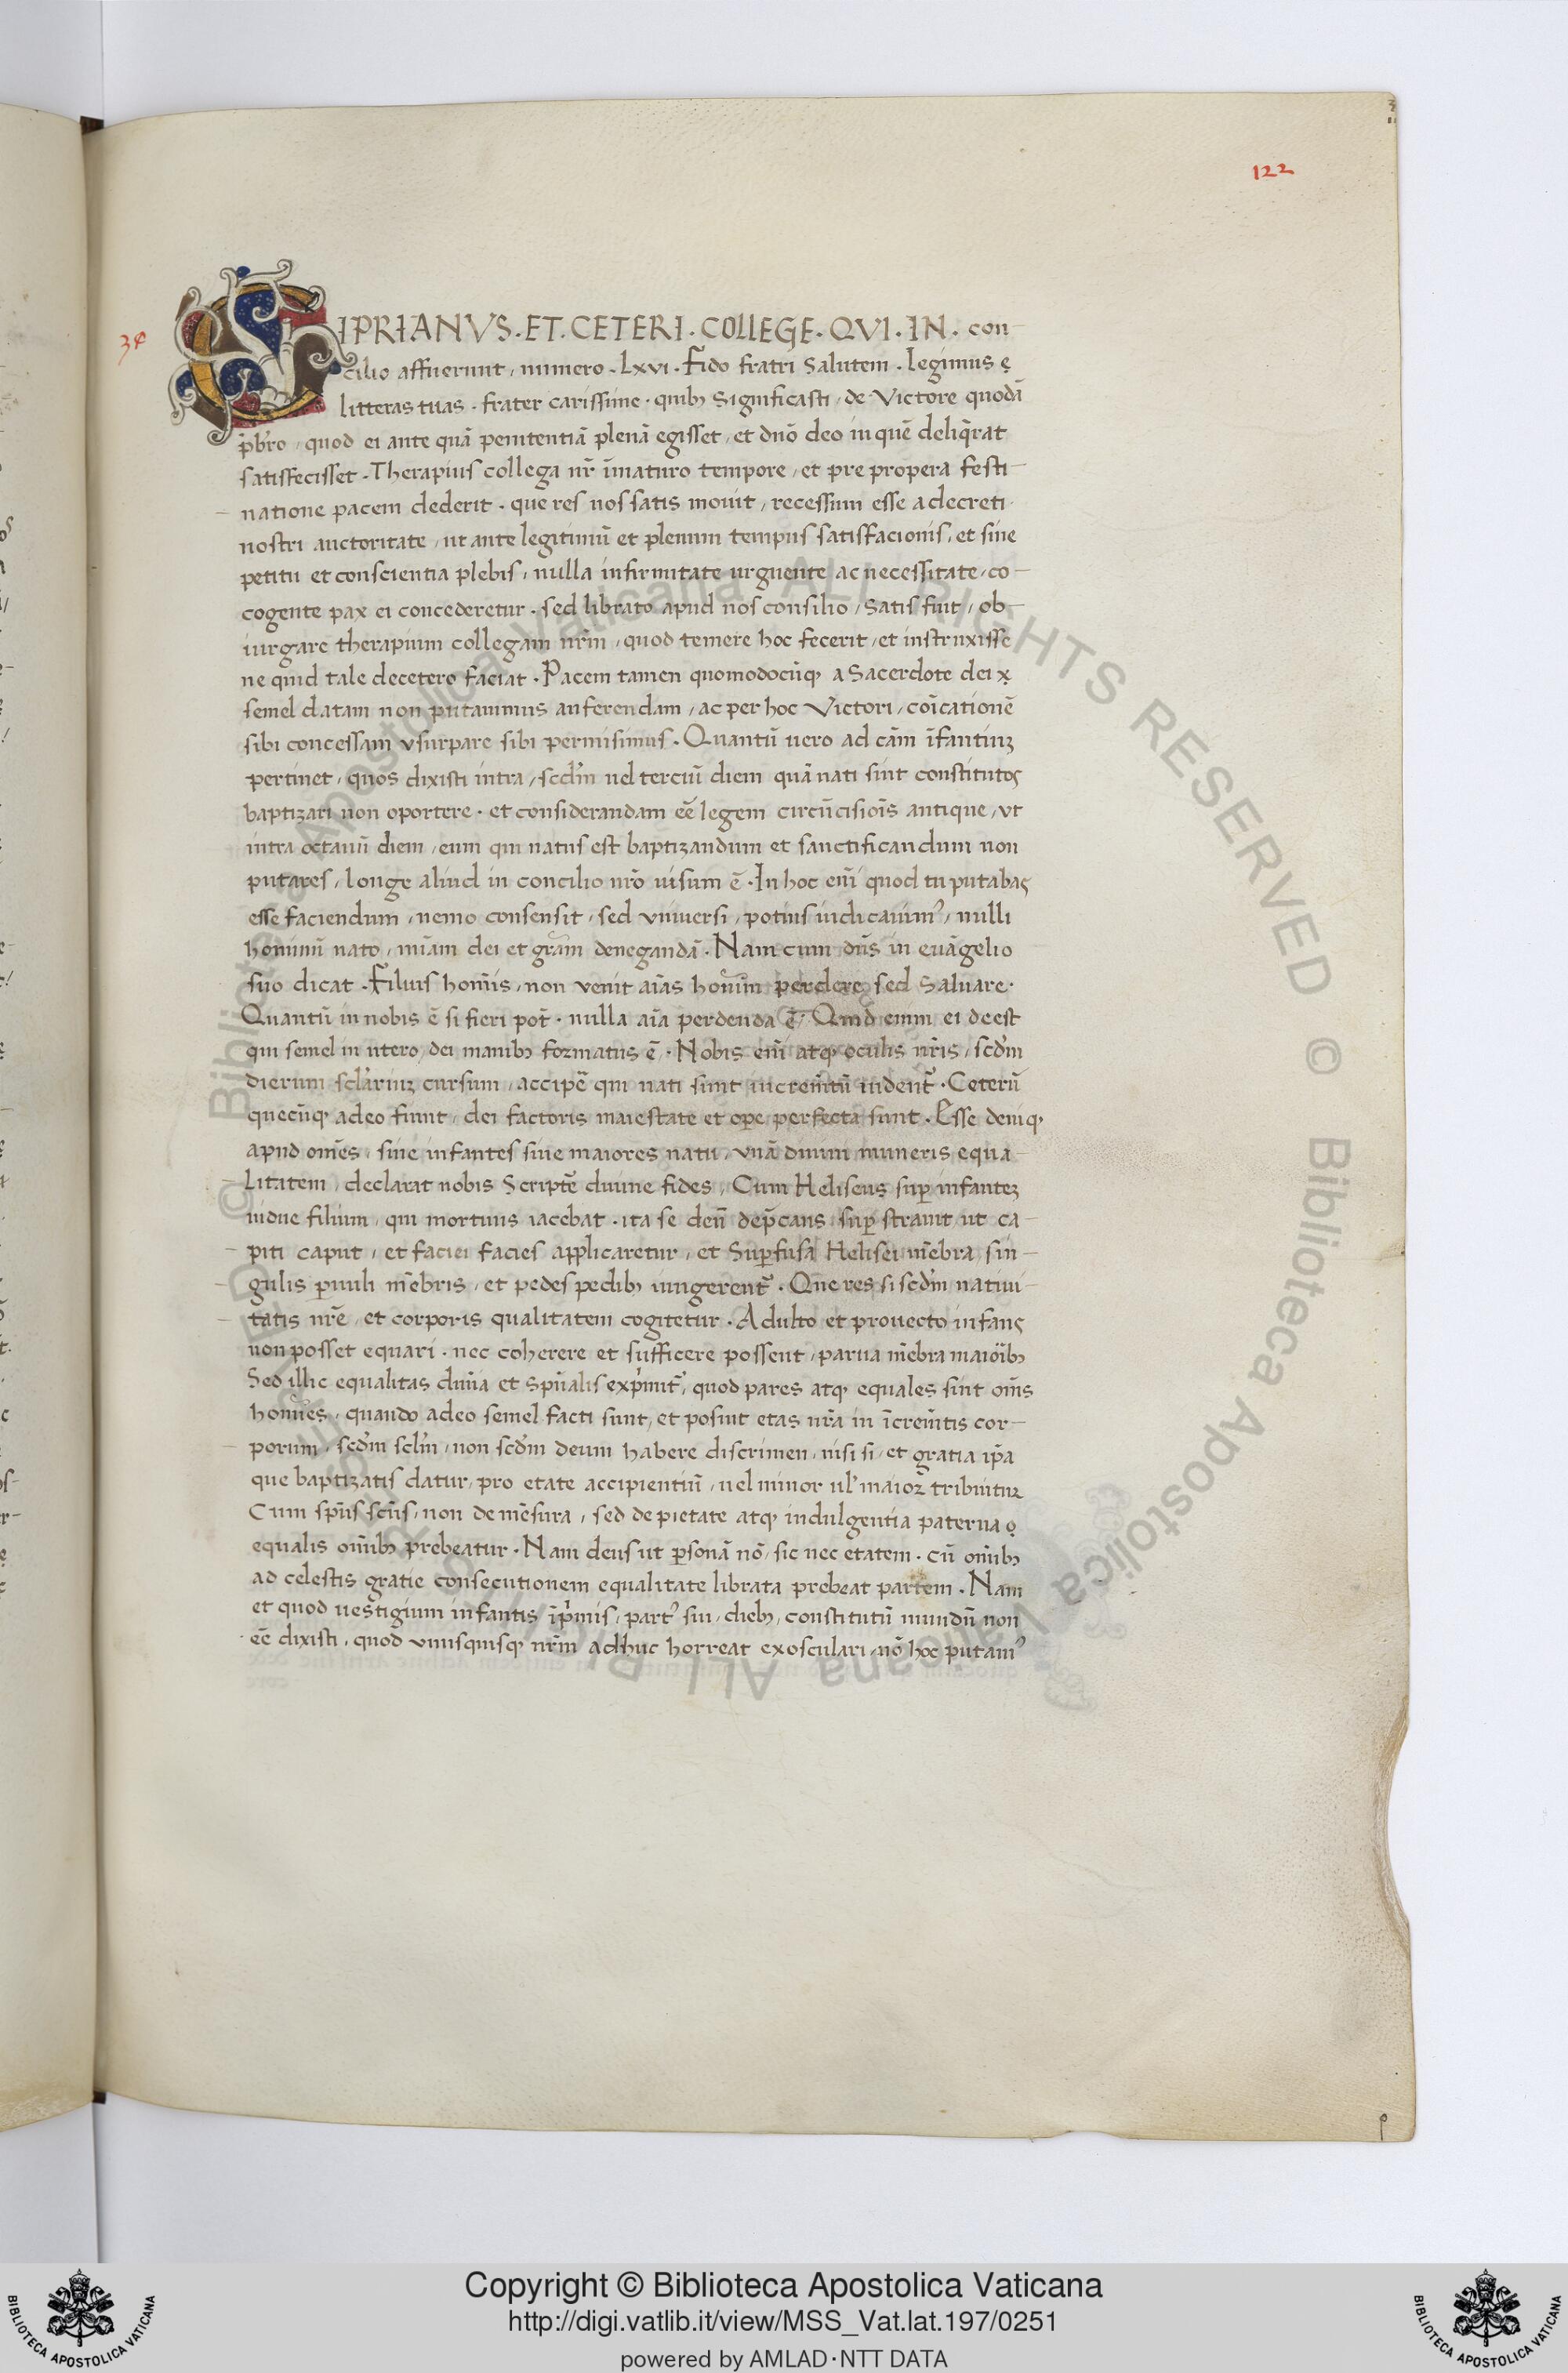 122
34
CIPRIANVS . ET . CETERI . COLLEGE . QVI . IN . con-
cilio affuerunt, numero . Lxvi . Fido fratri Salutem . Legimus ę
litteras tuas . frater carissime . quibꝫ Significasti, de Victore quodā
p̄br̄o, quod ei ante quā penitentiā plenā egisset, et dn̄o deo in quē deliq̄rat
satisfecisset . Therapius collega nr̄ īmaturo tempore, et pre propera festi-
natione pacem dederit . que res nos satis mouit, recessum esse a decreti
nostri auctoritate, ut ante legitimū et plenum tempus satisfacionis, et sine
petitu et conscientia plebis, nulla infirmitate urguente ac necessitate, co-
cogente pax ei concederetur . sed librato apud nos consilio, Satis fuit, ob-
iurgare therapium collegam nr̄m, quod temere hoc fecerit, et instruxisse
ne quid tale decetero faciat . Pacem tamen quomodocūqꝫ a Sacerdote dei x̨
semel datam non putauimus auferendam, ac per hoc Victori, coīcationē
sibi concessam vsurpare sibi permisimus . Quantū uero ad cām īfantiuꝫ
pertinet, quos dixisti intra, scd̄m uel terciū diem quā nati sint constitutos
baptizari non oportere . et considerandam eē legem circūcisiōīs antique, vt
intra octauū diem, eum qui natus est baptizandum et sanctificandum non
putares, longe aliud in concilio nr̄o uisum ē . In hoc enī quod tu putabas
esse faciendum, nemo consensit, sed vniuersi, potius iudicauimꝰ, nulli
hominū nato, miām dei et grām denegandā . Nam cum dn̄s in euāgelio
suo dicat . Filius homīs, non venit aīas homīm perdere, sed Saluare .
Quantū in nobis ē si fieri pot̄ . nulla aīa perdenda ē, Quid enim ei deest
qui semel in utero, dei manibꝫ formatus ē . Nobis enī atqꝫ oculis nr̄is, scd̄m
dierum scl̄ariuꝫ cursum, accipē qui nati sunt incremētū uidenr̄ . Ceterū
quecūqꝫ adeo fiunt, dei factoris maiestate et ope perfecta sunt . Esse deniqꝫ
apud om̄es, siue infantes siue maiores natu, vnā diuini muneris equa-
Litatem, declarat nobis Scriptē diuine fides, Cum Heliseus suꝑ infanteꝫ
uidue filium, qui mortuus iacebat . ita se deū dep̄cans suꝑ strauit ut ca-
piti caput, et faciei facies applicaretur, et Suꝑfusa Helisei mēbra, sin-
gulis ꝑuuli mēbris, et pedes pedibꝫ iungerent̄ . Que res si scd̄m natiui-
tatis nr̄e, et corporis qualitatem cogitetur . Adulto et prouecto infans
non posset equari . nec coherere et sufficere possent, parua mēbra maioībꝫ
Sed illic equalitas diuīa et Spūalis exp̄mit̄, quod pares atqꝫ equales sint om̄s
homīes, quando adeo semel facti sunt, et possit etas nr̄a in īcremētis cor-
porum, scd̄m scl̄m, non scd̄m deum habere discrimen, nisi si, et gratia ip̄a
que baptizatis datur, pro etate accipientiū, uel minor ul̄ maior tribuitur
Cum spūs scūs, non de mēsura, sed de pietate atqꝫ indulgentia paterna ọ
equalis om̄ibꝫ prebeatur . Nam deus ut ꝑsonā nō, sic nec etatem . cū om̄ibꝫ
ad celestis gratie consecutionem equalitate librata prebeat partem . Nam
et quod uestigium infantis īp̄mis, partꝰ sui, diebꝫ, constitutū mundū non
eē dixisti, quod vnusquisqꝫ nr̄m adhuc horreat exosculari, nō hoc putamꝰ
Copyright © Biblioteca Apostolica Vaticana
http://digi.vatlib.it/view/MSS_Vat.lat.197/0251
powered by AMLAD·NTT DATA
BIBLIOTECA APOSTOLICA VATICANA
BIBLIOTECA APOSTOLICA VATICANA
© Biblioteca Apostolica Vaticana ALL RIGHTS RESERVED © Biblioteca Apostolica Vaticana ALL RIGHTS RESERVED